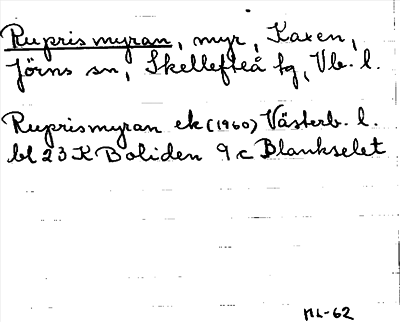 Ruprismyran, myr, Kaxen,
Jörns sn, Skellefteå kg, Vb. l.
Ruprismyran ek (1960) Västerb. l.
bl 23 K Boliden 9 c Blankselet
ML-62